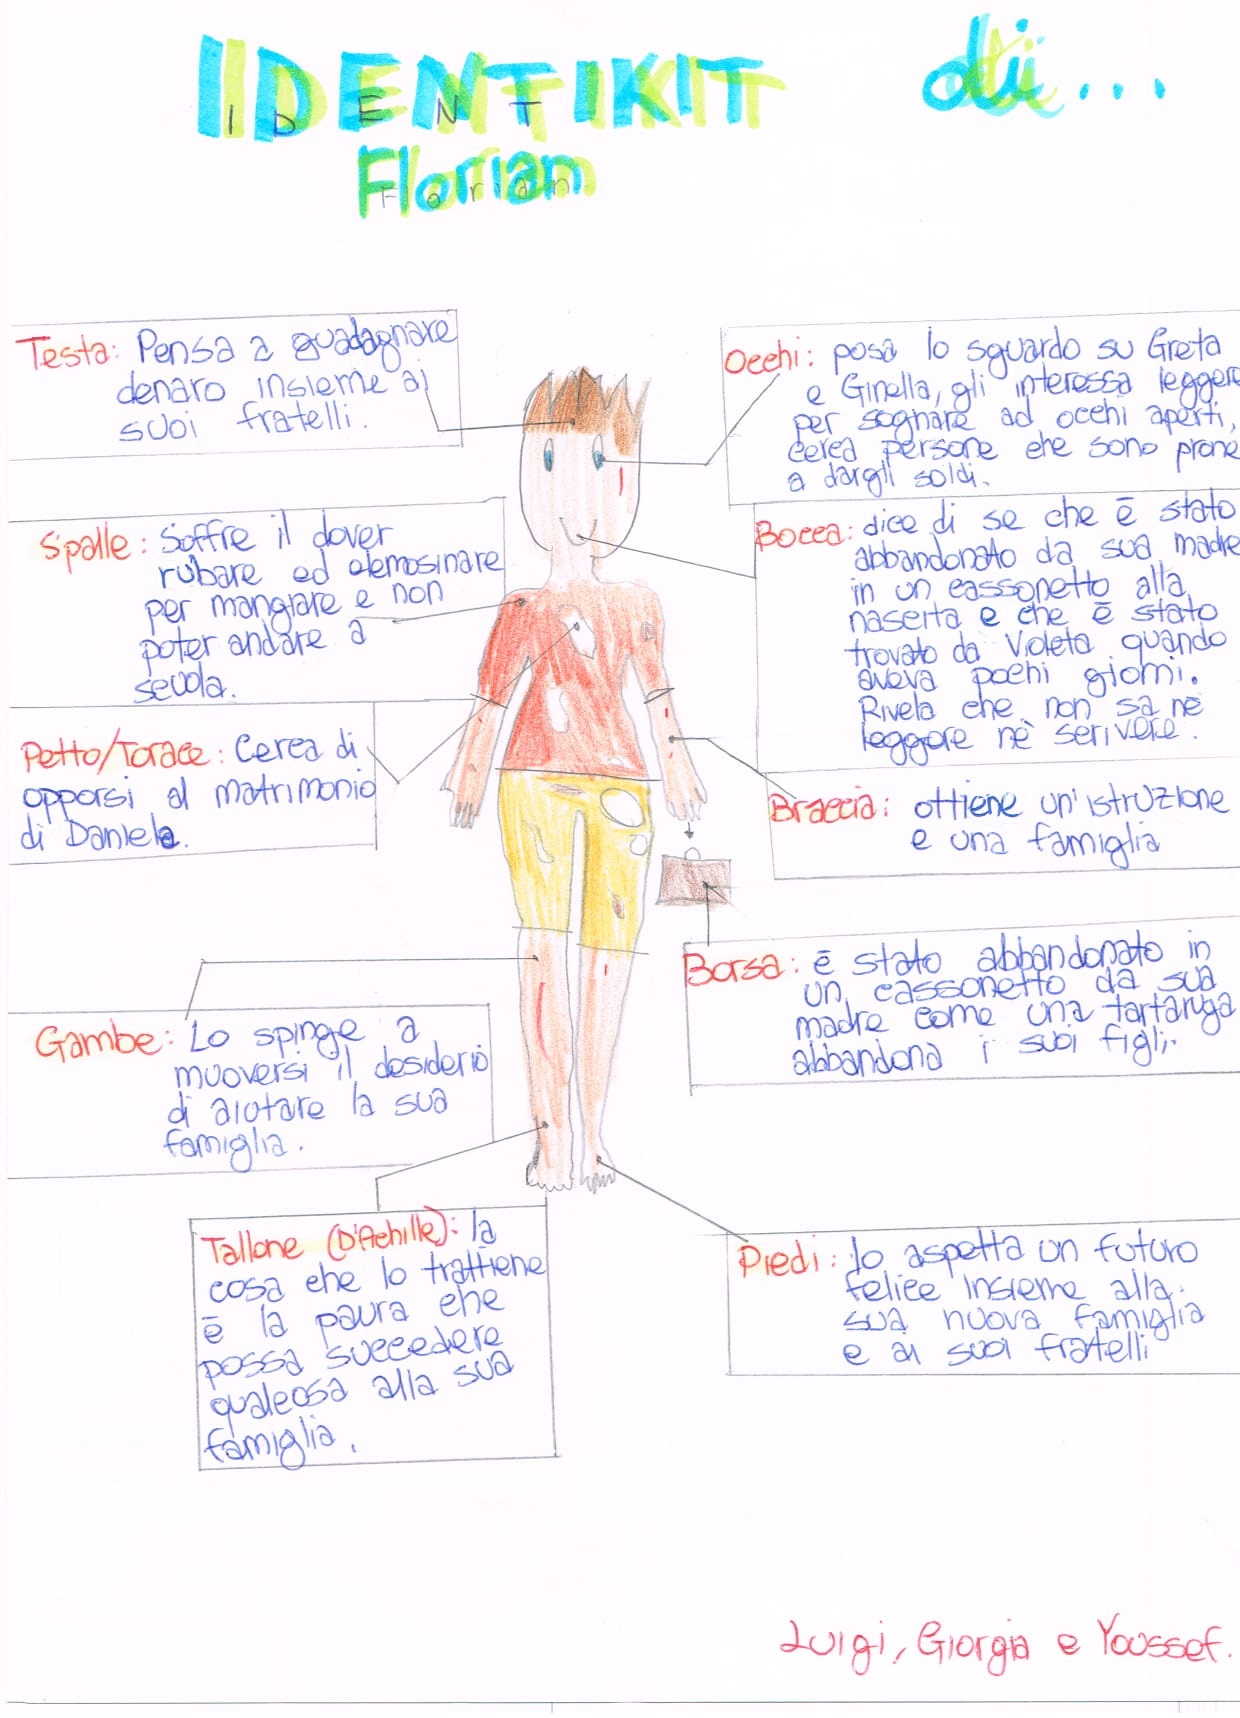 IDENTIKIT di...
IDENT
Florian
Florian
Testa: Pensa a guadagnare
denaro insieme ai
suoi fratelli.
Occhi: posa lo sguardo su Greta
e Ginella, gli interessa leggere
per sognare ad occhi aperti,
cerca persone che sono prone
a dargli soldi.
Spalle: Soffre il dover
rubare ed elemosinare
per mangiare e non
poter andare a
scuola.
Bocca: dice di se che è stato
abbandonato da sua madre
in un cassonetto alla
nascita e che è stato
trovato da Violeta quando
aveva pochi giorni.
Rivela che non sa nè
leggere nè scrivere.
Petto/Torace: Cerca di
opporsi al matrimonio
di Daniela.
Braccia: ottiene un'istruzione
e una famiglia
Borsa: è stato abbandonato in
un cassonetto da sua
madre come una tartaruga
abbandona i suoi figli.
Gambe: Lo spinge a
muoversi il desiderio
di aiutare la sua
famiglia.
Tallone (D'Achille): la
cosa che lo trattiene
è la paura che
possa succedere
qualcosa alla sua
famiglia.
Piedi: lo aspetta un futuro
felice insieme alla
sua nuova famiglia
e ai suoi fratelli
Luigi, Giorgia e Youssef.